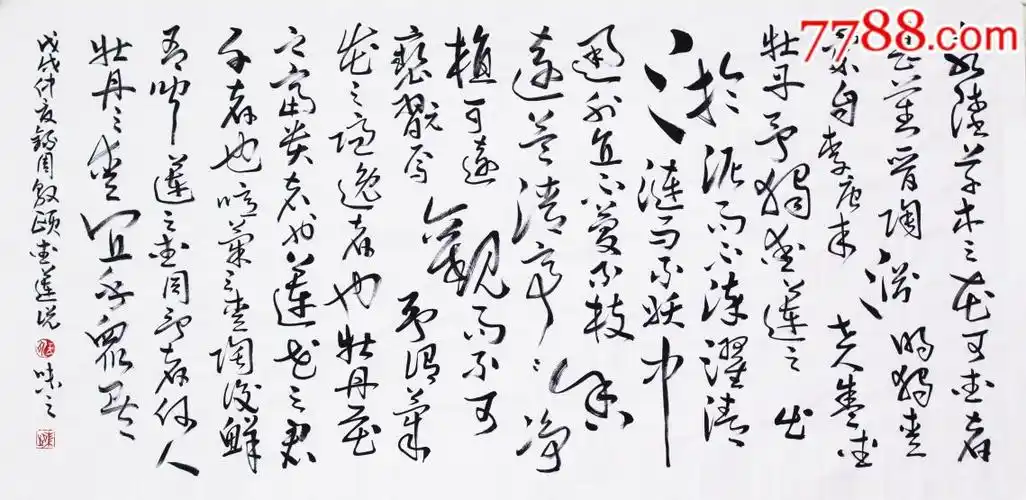 7788.com
水陸草木之花可愛者
甚蕃晉陶淵明獨愛
菊自李唐來世人甚愛
牡丹予獨愛蓮之出
淤泥而不染濯清
漣而不妖中
通外直不蔓不枝香
遠益清亭亭淨
植可遠觀而不可
褻翫焉予謂菊
花之隱逸者也牡丹花
之富貴者也蓮花之君
子者也噫菊之愛陶後鮮
有聞蓮之愛同予者何人
牡丹之愛宜乎眾矣
戊戌仲夏錄周敦頤愛蓮說 味之